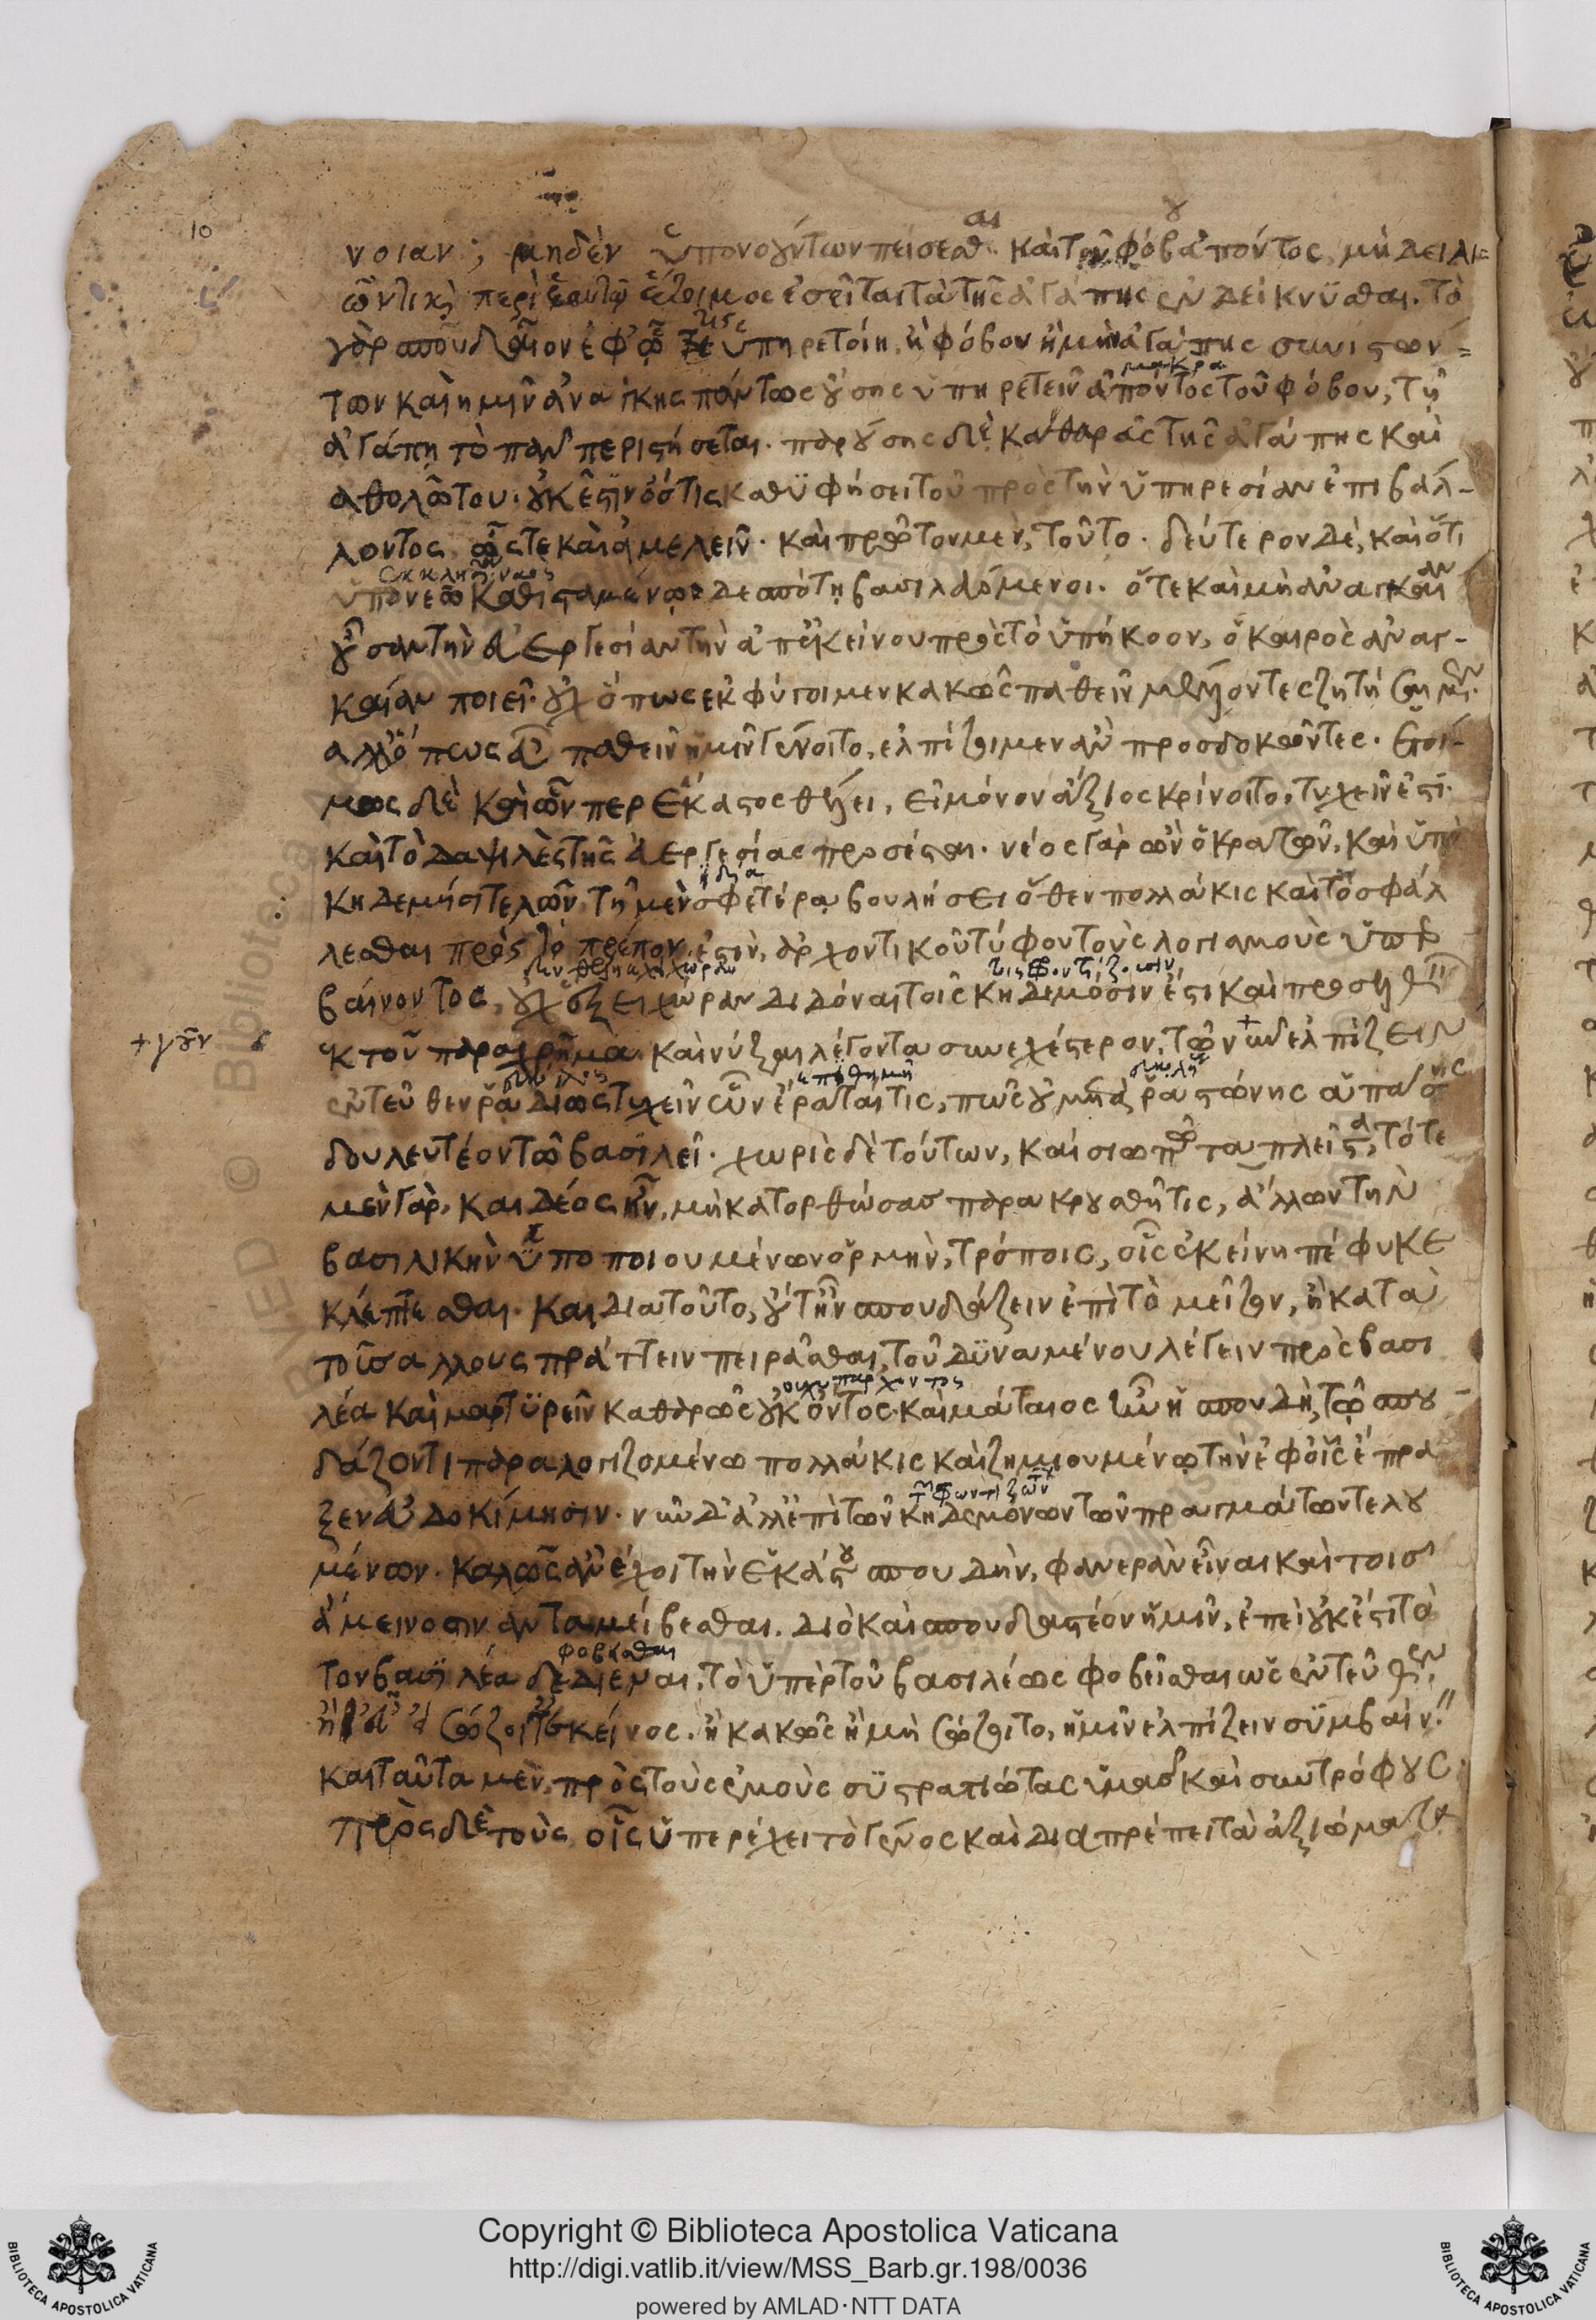 10
νοιαν; μηδὲν ὑπονοούντων πείσεσθαι καὶ τοῦ φόβου ἀπόντος, μὴ δειλι=
ῶν τις περὶ ἑαυτῷ ἕτοιμος ἐσεῖται τὰ τῆς ἀγάπης ἐνδείκνϋσθαι. τὸ
γὰρ σπουδαῖον ἐφ' ᾧ τις ὑπηρετοίη, ἢ φόβον ἢ μὴν ἀγάπης συνιστών=
των καὶ ἡμῖν ἀνάγκης πάντως οὔσης ὑπηρετεῖν ἀπόντος τοῦ φόβου, τῇ
μακρα
ἀγάπη τὸ πᾶν περιστήσεται. παρούσης δὲ καθαρᾶς τῆς ἀγάπης καὶ
ἀθολώτου. οὐκ ἔστιν ὅστις καθϋφήσει τοῦ πρὸς τὴν ὑπηρεσίαν ἐπιβάλ-
λοντος, ὥστε καὶ ἀμελεῖν. καὶ πρῶτον μὲν, τοῦτο. δεύτερον δὲ, καὶ ὅτι
ὑπὸ νέῳ καθισταμένῳ δεσπότῃ βασιλευόμενοι. ὅτε καὶ μὴ ἀναγκαίαν
οὖσαν τὴν εὐεργεσίαν τὴν ἀπ' ἐκείνου πρὸς τὸ ὑπήκοον, ὁ καιρὸς ἀναγ-
καίαν ποιεῖ. οὐχ ὅπως ἐκφύγοιμεν κακῶς παθεῖν μέλλοντες ζητήσομεν.
ἀλλ' ὅπως εὖ παθεῖν ἡμῖν γένοιτο, ἐλπίζοιμεν ἂν προσδοκῶντες. ἑτοί-
μως δὲ καὶ ὧν περ ἕκαστος θέλει, εἰ μόνον ἄξιος κρίνοιτο, τυχεῖν ἐστί.
καὶ τὸ δαψιλὲς τῆς εὐεργεσίας προσέσται. νέος γὰρ ὢν ὁ κρατῶν, καὶ ὑπὸ
κηδεμόσι τελῶν, τῇ μὲν σφετέρᾳ βουλήσει ὅθεν πολλάκις καὶ τὸ σφάλ
ἰδία
λεσθαι πρὸς τὸ πρέπον ἐστὶν, ἄρχοντι κοὐ τύφοντοὺς λογισμοὺς ὑπερ
βαίνοντος, οὐχ ἕξει χώραν διδόναι τοῖς κηδεμόσιν ἐστι καὶ προσελθεῖν
τις φροντίζουσιν
+ γοῦν ἐκ τοῦ παραχρῆμα. καὶ νύξαι λέγοντα συνεχέστερον, τῶν + ὧδ' ἐλπίζειν
ἐντεῦθεν ῥᾳδίως τυχεῖν ὧν ἐρᾶται τις, πῶς οὐ μετὰ ῥᾳστώνης ἁπάσης
ἐπιθυμεῖ
δουλευτέον τῷ βασιλεῖ. χωρὶς δὲ τούτων, καὶ σιωπῶ τὰ πλεῖστα, τότε
μὲν γὰρ, καὶ δέος ἦν, μὴ κατορθώσας παρακρουσθῇ τις, ἄλλων τὴν
βασιλικὴν ὑποποιουμένων ὁρμὴν, τρόποις, οἷς ἐκείνη πέφυκε
κλέπτεσθαι. καὶ διὰ τοῦτο, οὔτ' ἦν σπουδάζειν ἐπὶ τὸ μεῖζον, ἢ κατὰ
τοῖς ἄλλους πράττειν πειρᾶσθαι, τοῦ δϋναμένου λέγειν πρὸς βασι
λέα καὶ μαρτϋρεῖν καθαρῶς οὐκ ὄντος. καὶ μάταιος ἦν ἡ σπουδὴ, τῷ σπου-
οὐχ ὑπάρχοντος
δάζοντι παραλογιζομένῳ πολλάκις καὶ ζημιουμένῳ τὴν ἐφ' οἷς ἔπρα
ξεν εὐδοκίμησιν. νῦν δ' ἀλλ' ἐπὶ τῶν κηδεμόνων τῶν πραγμάτων τελου
τῶν φροντιζόντων
μένων. καλῶς ἂν ἔχοι τὴν ἑκάστου σπουδὴν, φανερὰν εἶναι καὶ τοῖς
ἀμείνοσιν ἀνταμείβεσθαι. διὸ καὶ σπουδαστέον ἡμῖν, ἐπεὶ οὐκ ἔστι τὸ
τὸν βασιλέα δεδιέναι, τὸ ὑπὲρ τοῦ βασιλέως φοβεῖσθαι ὡς ἐντεῦθεν
φοβεῖσθαι
ἢ εὖ εἰ σώζοιτο ἐκεῖνος. ἢ κακῶς ἢ μὴ σώζοιτο, ἡμῖν ἐλπίζειν σϋμβαίνει.
καὶ ταῦτα μὲν, πρὸς τοὺς ἐμοὺς σϋστρατιώτας ὑμᾶς καὶ συντρόφους.
Πρὸς δὲ τοὺς, οἷς ὑπερέχει τὸ γένος καὶ διαπρέπει τὰ ἀξιώματα
Copyright © Biblioteca Apostolica Vaticana
http://digi.vatlib.it/view/MSS_Barb.gr.198/0036
powered by AMLAD·NTT DATA
BIBLIOTECA APOSTOLICA VATICANA
BIBLIOTECA APOSTOLICA VATICANA